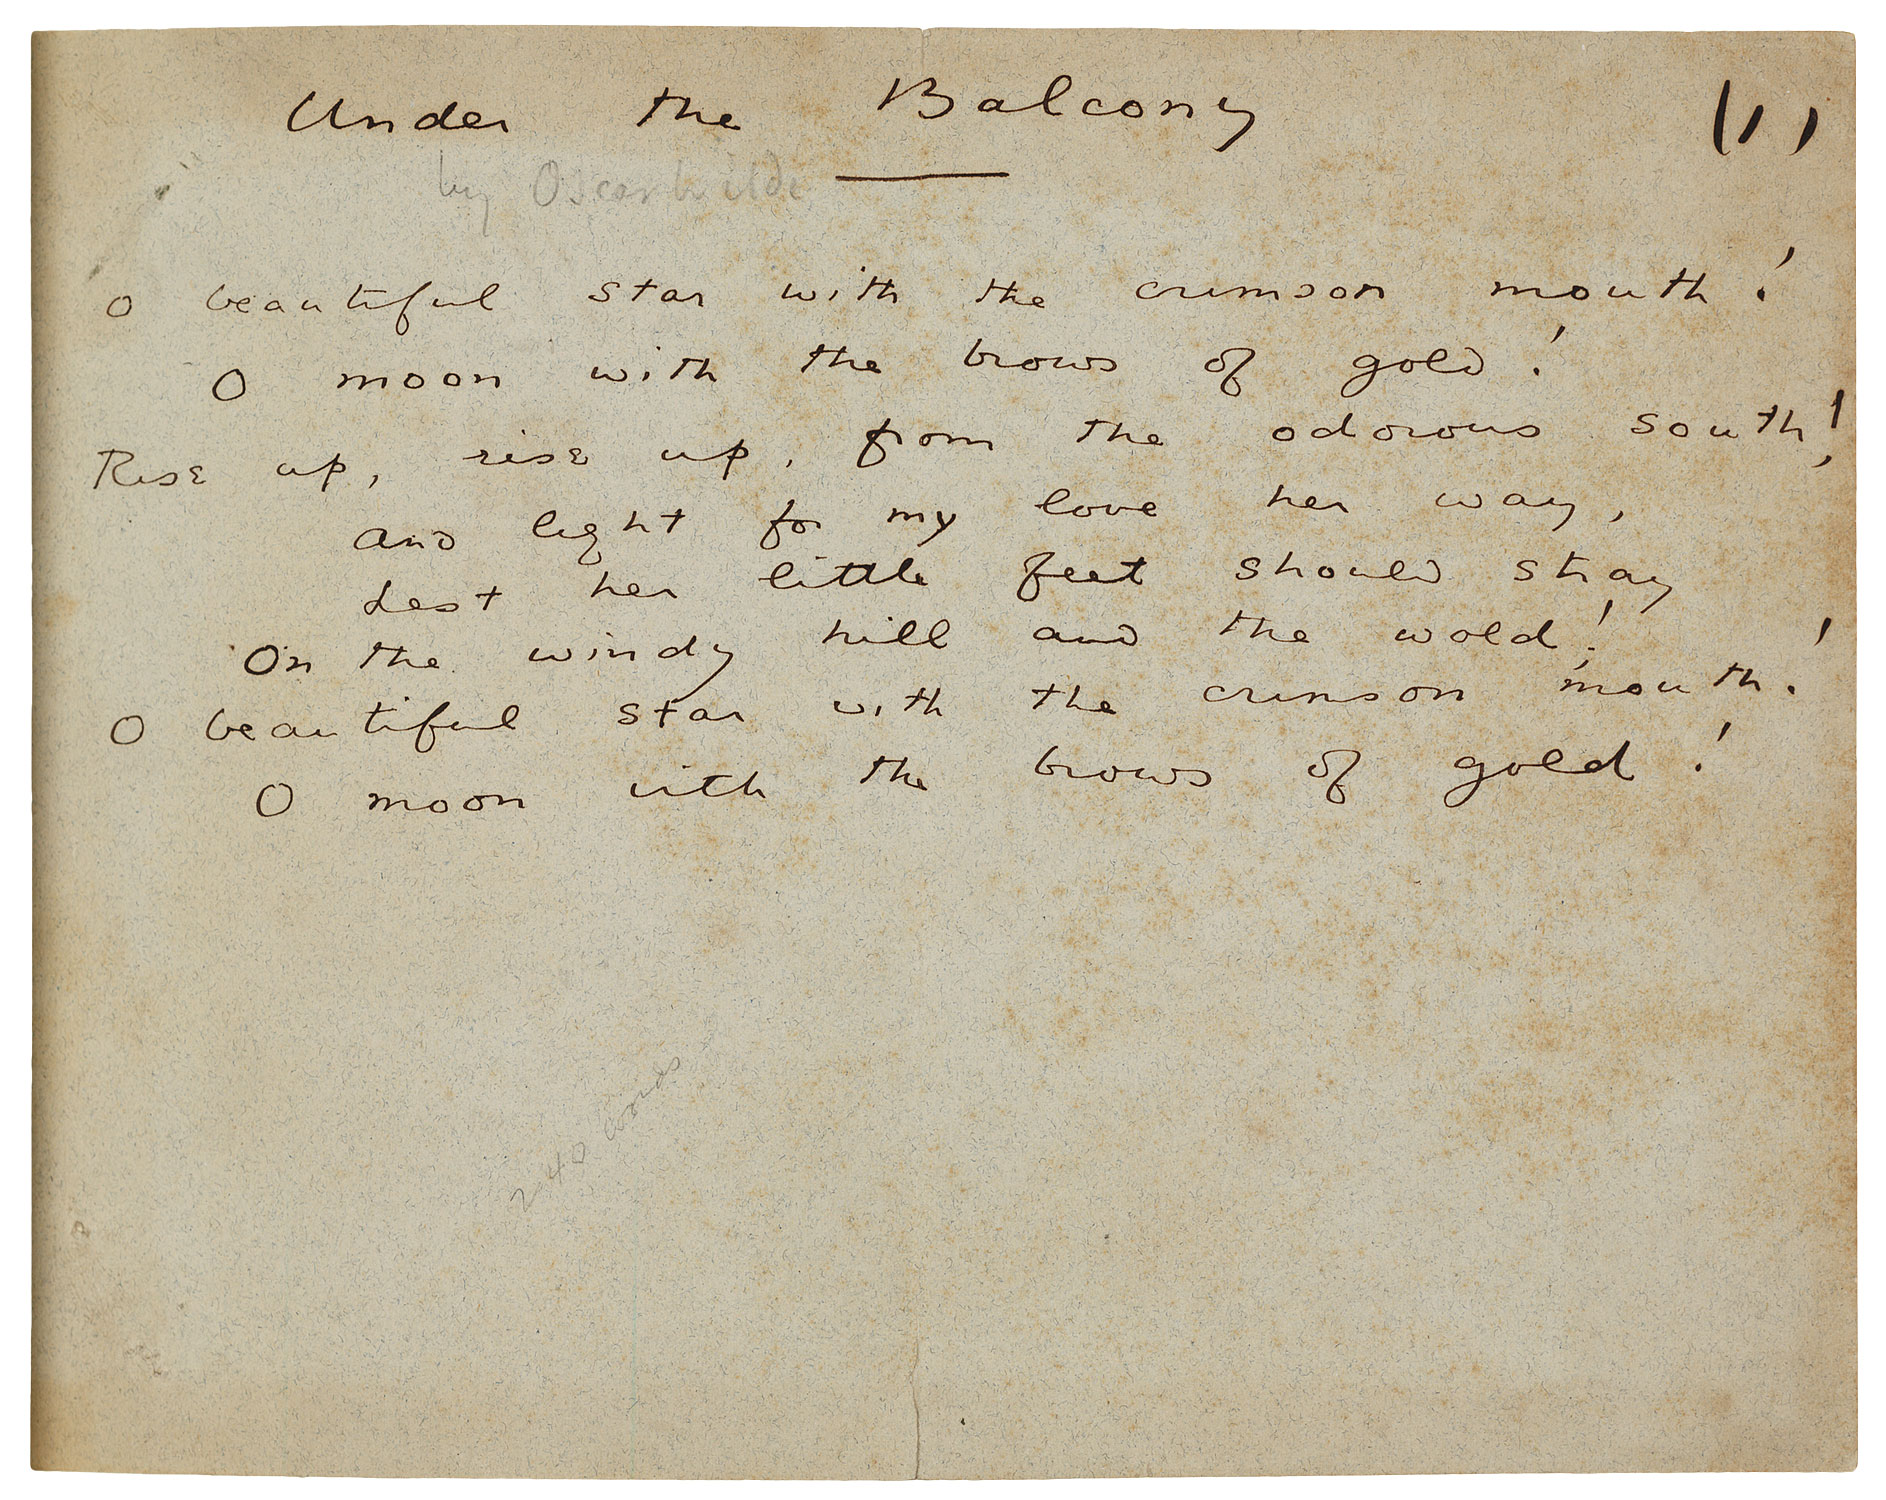 Under the Balcony (1)
by Oscar Wilde
O beautiful star with the crimson mouth!
O moon with the brows of gold!
Rise up, rise up, from the odorous south!
And light for my love her way,
Lest her little feet should stray
On the windy hill and the wold!
O beautiful star with the crimson mouth!
O moon with the brows of gold!
240 words